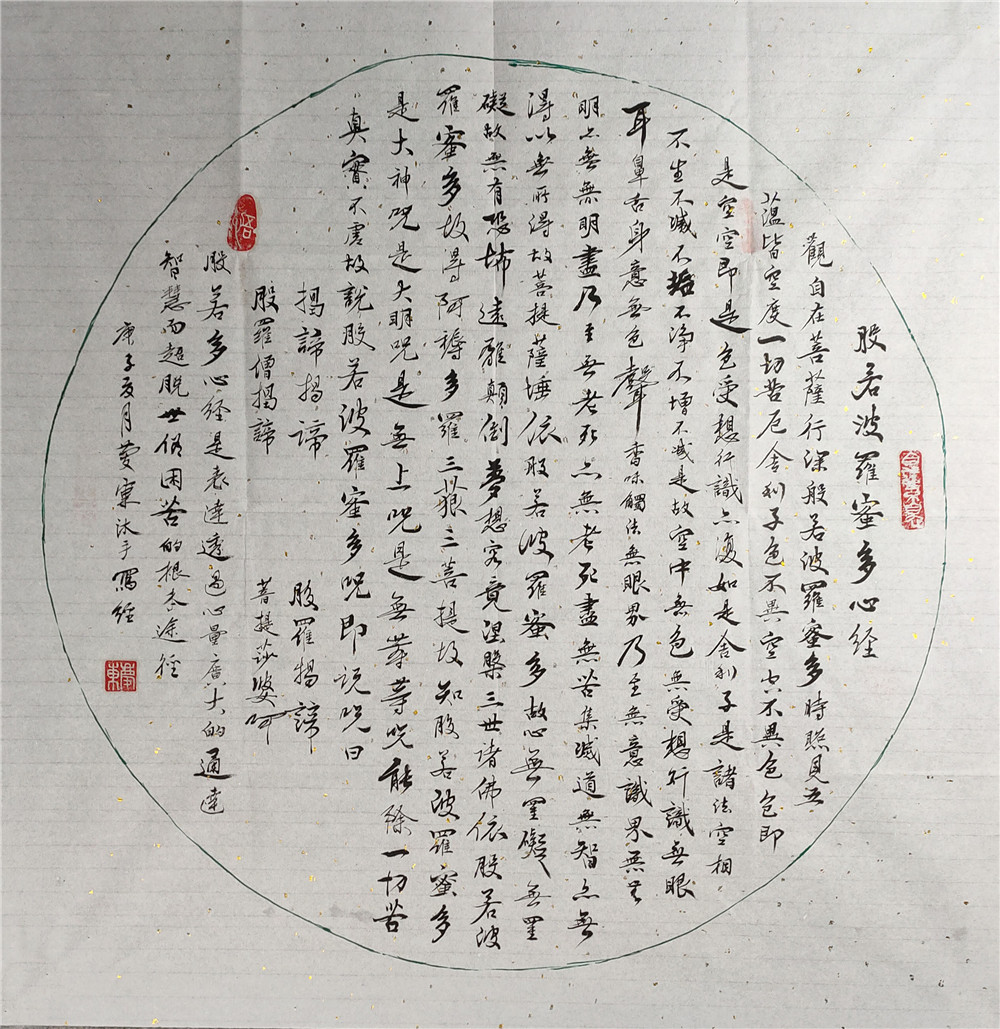 般若波羅蜜多心经
觀自在菩薩行深般若波羅蜜多時照見五
蕴皆空度一切苦厄舍利子色不異空空不異色色即
是空空即是色受想行識亦復如是舍利子是諸法空相
不生不滅不垢不净不增不减是故空中無色無受想行識無眼
耳鼻舌身意無色聲香味觸法無眼界乃至無意識界無無
明亦無無明盡乃至無老死亦無老死盡無苦集滅道無智亦無
得以無所得故菩提薩埵依般若波羅蜜多故心無罣礙無罣
礙故無有恐怖遠離顛倒夢想究竟涅槃三世諸佛依般若波
羅蜜多故得阿耨多羅三藐三菩提故知般若波羅蜜多
是大神咒是大明咒是無上咒是無等等咒能除一切苦
真實不虛故說般若波羅蜜多咒即说咒曰
揭諦揭諦 般羅揭諦
般羅僧揭諦 菩提莎婆呵
般若多心经是表達透過心量廣大的通達
智慧而超脱世俗困苦的根本途徑
庚子夏月夢東沐手寫经
夢東